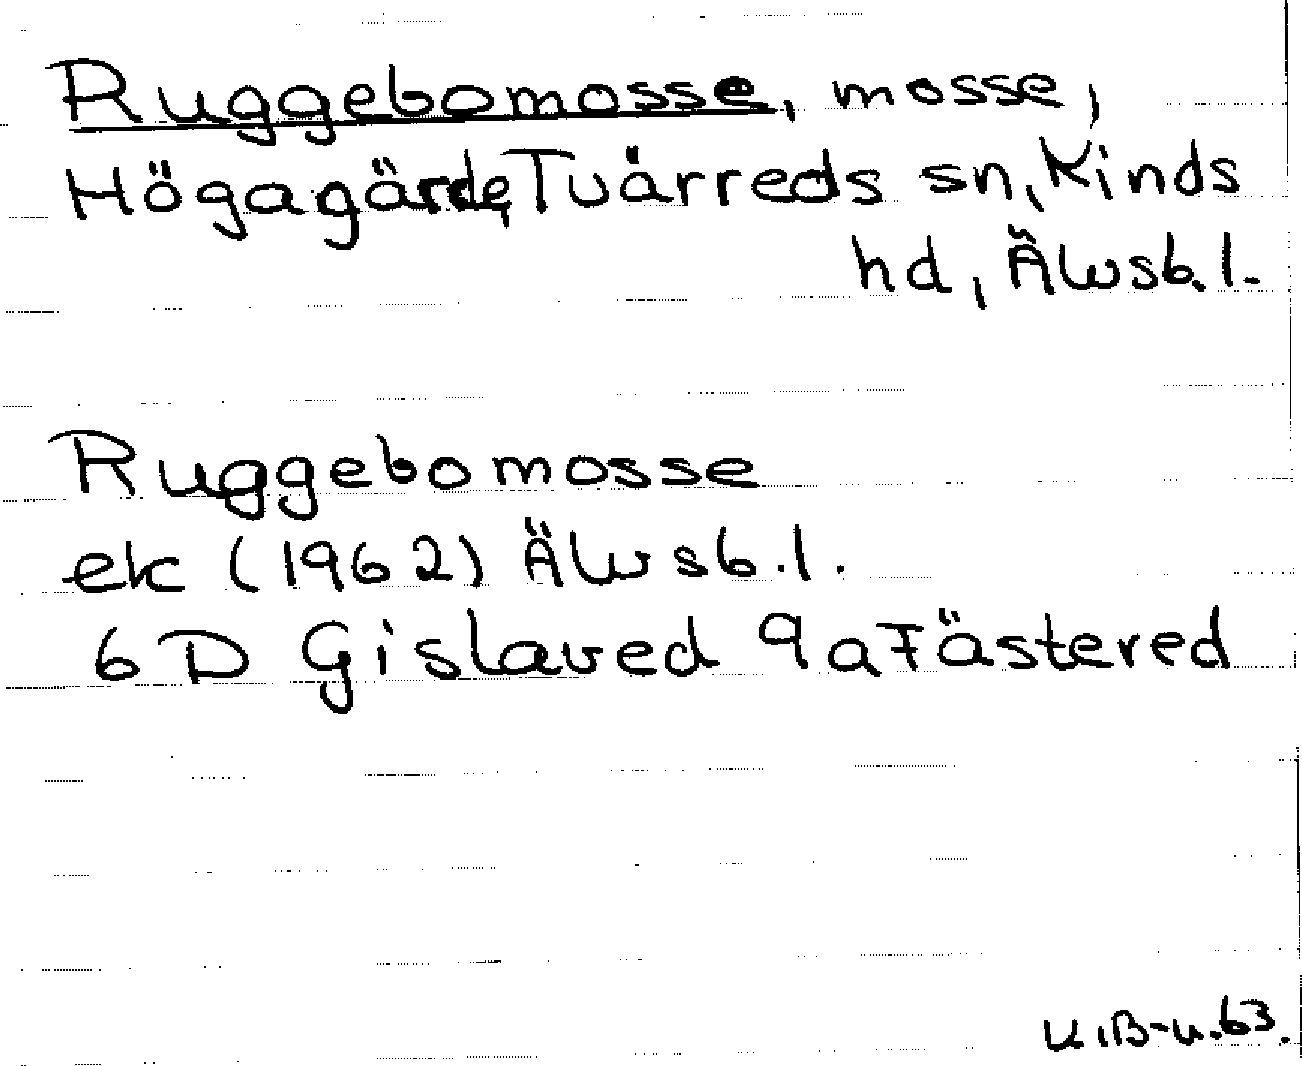 Ruggebomosse, mosse,
Högagärde, Tvärreds sn, Kinds
hd, Älvsb. l.
Ruggebomosse
ek (1962) Älvsb. l.
6 D Gislaved 9a Fästered